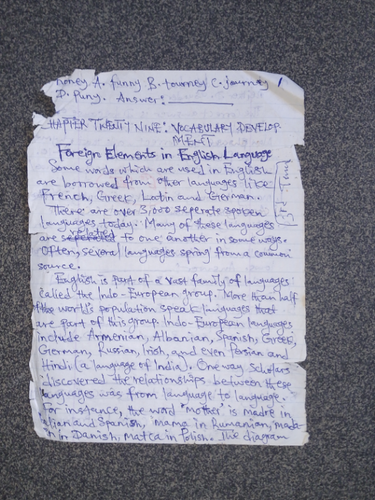 honey A. funny B. tourney C. journey
D. Puny. Answer:
CHAPTER TWENTY NINE: VOCABULARY DEVELOP
MENT
Foreign Elements in English Language
Some words which are used in English
are borrowed from other languages like
French, Greek, Latin and German.
There are over 3,000 seperate spoken
languages today. Many of these languages
are related to one another in some ways.
Often, several languages spring from a common
source.
English is part of a vast family of languages
called the Indo-European group. More than half
the world's population speak languages that
are part of this group. Indo-European languages
include Armenian, Albanian, Spanish, Greek,
German, Russian, Irish, and even Persian and
Hindi (a language of India). One way Scholars
discovered the relationships between these
languages was from language to language.
For instance, the word "mother" is madre in
Italian and Spanish, mama in Rumanian, mada
in Danish, matca in Polish. The diagram